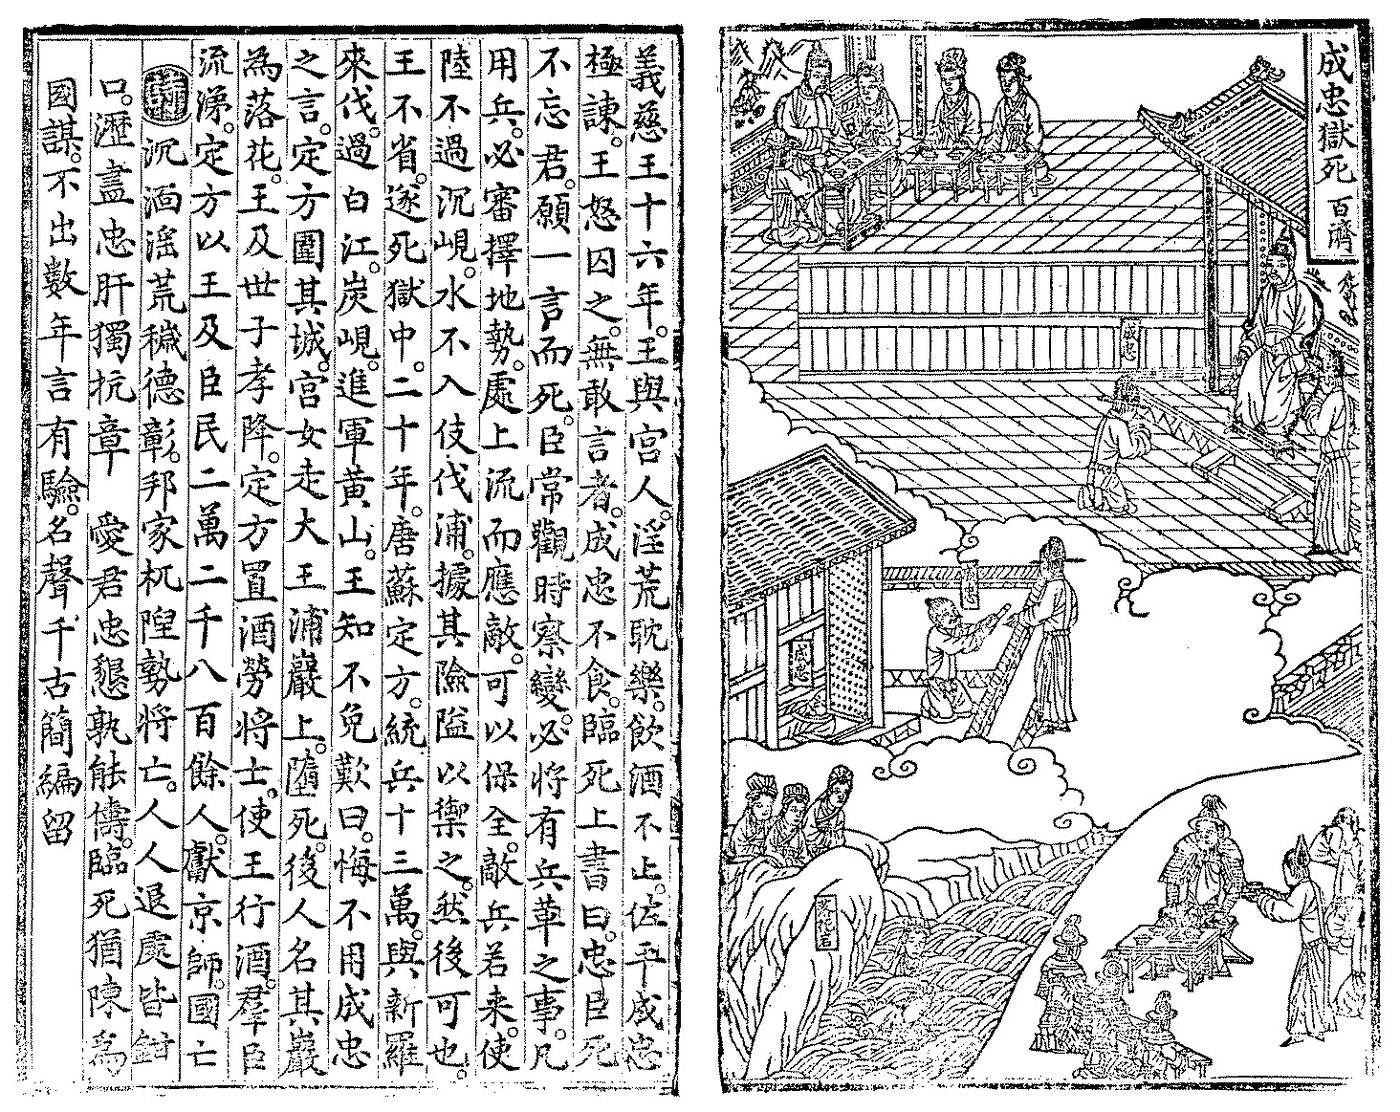 成忠獄死 百濟
成忠
成忠
落花岩
義慈王十六年。王與宮人。淫荒耽樂。飲酒不止。佐平成忠
極諫。王怒囚之。無敢言者。成忠不食。臨死上書曰。忠臣死
不忘君。願一言而死。臣常觀時察變。必將有兵革之事。凡
用兵。必審擇地勢。處上流而應敵。可以保全。敵兵若来。使
陸不過沉峴。水不入伎伐浦。據其險隘以禦之。然後可也。
王不省。遂死獄中。二十年。唐蘇定方。統兵十三萬。與新羅
來伐。過白江。炭峴。進軍黃山。王知不免歎曰。悔不用成忠
之言。定方圍其城。宮女走大王浦巖上。墮死。後人名其巖
為落花。王及世子孝降。定方置酒勞將士。使王行酒。羣臣
流涕。定方以王及臣民二萬二千八百餘人。獻京師。國亡
詩 沉湎淫荒穢德彰。邦家杌隉勢将亡。人人退處皆鉗
口。瀝盡忠肝獨抗章 愛君忠懇孰能儔。臨死猶陳為
國謀。不出數年言有驗。名聲千古簡編留